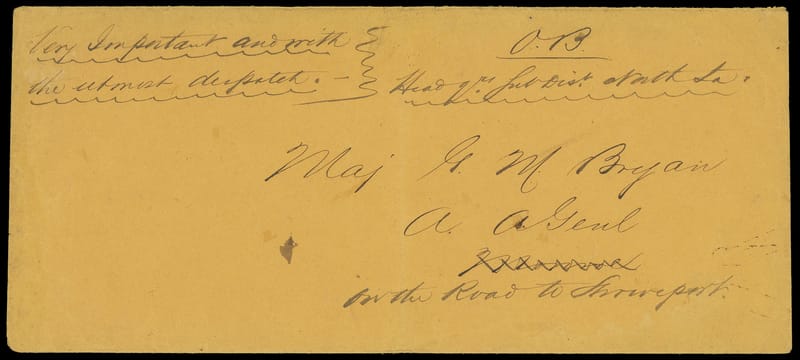 Very Important and with
the utmost despatch. -
O. B.
Head qrs Sub Dist. North La.
Maj G. M. Bryan
A. A Genl
on the Road to Shreveport.